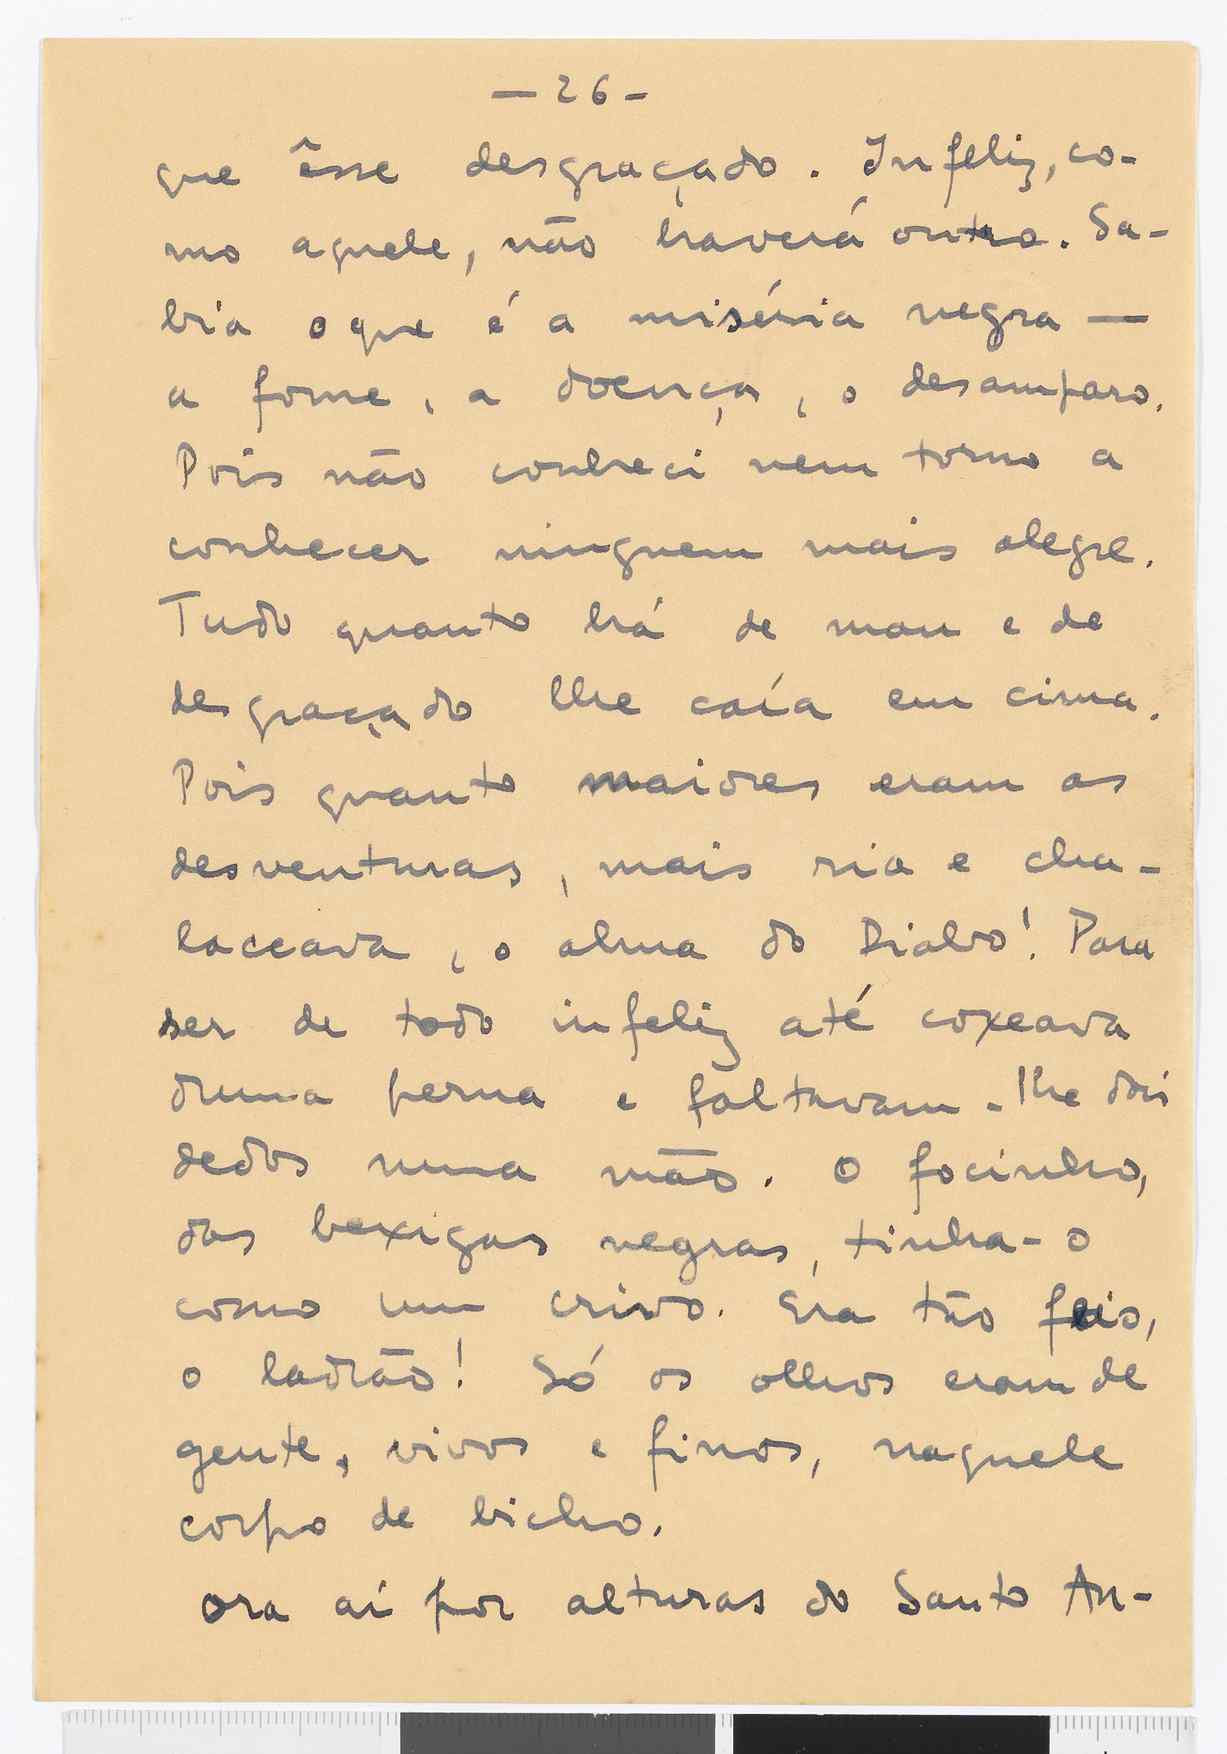 — 26 -
que êsse desgraçado. Infeliz, co-
mo aquele, não haverá outro. Sa-
bia o que é a miséria negra —
a fome, a doença, o desamparo.
Pois não conheci nem torno a
conhecer ninguem mais alegre.
Tudo quanto há de mau e de
desgraçado lhe caía em cima.
Pois quanto maiores eram as
desventuras, mais ria e cha-
laceava, o alma do Diabo! Para
ser de todo infeliz até coxeava
duma perna e faltavam-lhe dois
dedos numa mão. O focinho,
das bexigas negras, tinha-o
como um crivo. Era tão feio,
o ladrão! Só os olhos eram de
gente, vivos e finos, naquele
corpo de bicho.
Ora aí por alturas do Santo An-